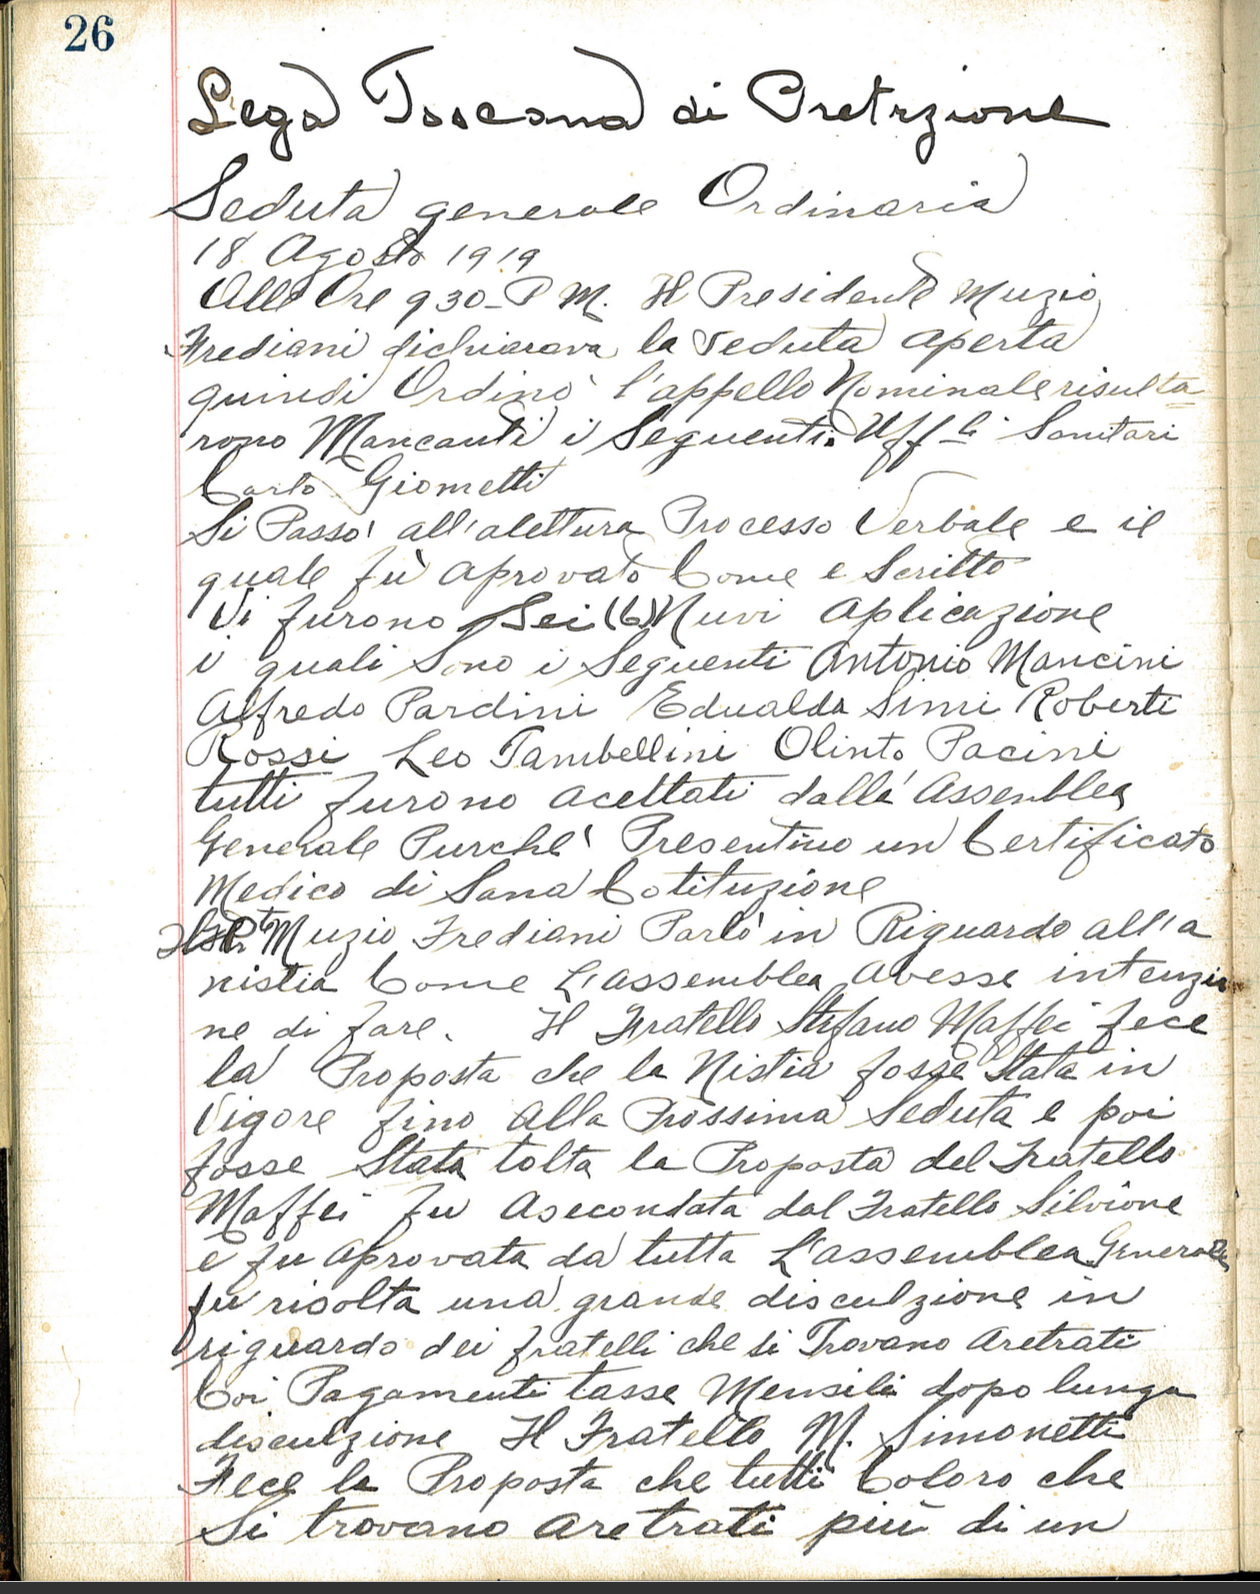 26
Lega Toscana di Pretezione
Seduta generale Ordinaria
18 Agosto 1919
Alle Ore 9 30 - P M. Il Presidente Muzio
Frediani dichiarava la seduta aperta
quindi Ordinò l'appello Nominale risulta=
rono Mancanti i Seguenti. Uffli Sanitari
Carlo Giometti
Si Passo' all'alettura Processo Verbale e il
quale fù aprovato Come e Scritto
Vi furono Sei (6) Nuvi aplicazione
i quali Sono i Seguenti Antonio Mancini
Alfredo Pardini Edualdo Simi Roberti
Rossi Leo Tambellini Olinto Pacini
tutti furono acettati dalla' Assemblea
Generale Purche' Presentino un Certificato
Medico di Sana Cotituzione
Il Muzio Frediani Parlò in Riguardo all'a
nistia Come L'assemblea avesse intenzio
ne di fare. Il Fratello Stefano Maffei fece
la Proposta che la Nistia fosse Stata in
Vigore fino alla Prossima Seduta e poi
fosse Stata tolta la Proposta del Fratello
Maffei fu Asecondata dal Fratello Silvione
e fu aprovata da tutta L'assemblea Generale
fu risolta una grande disculzione in
riguardo dei fratelli che si Trovano Aretrati
Coi Pagamenti tasse Mensili dopo lunga
disculzione Il Fratello M. Simonetti
Fece la Proposta che tutti Coloro che
Si trovano aretrati più di un